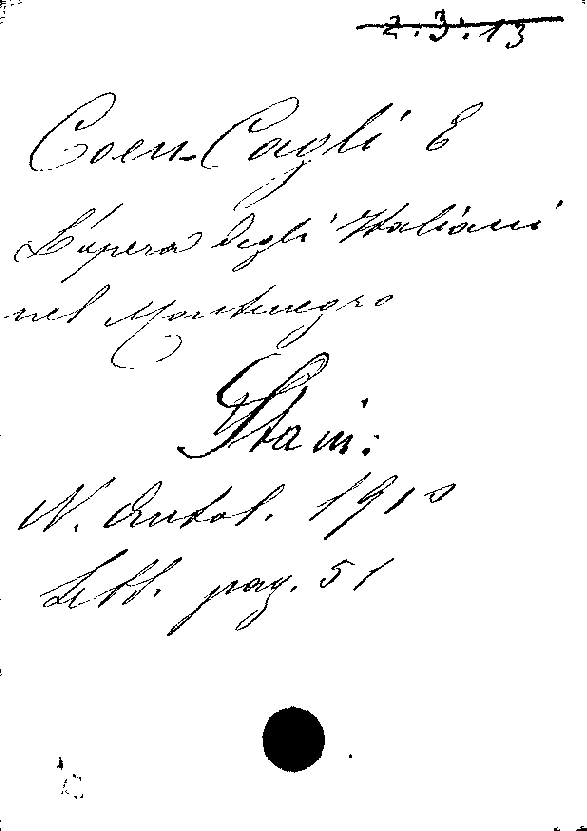 2.3.13
Coen-Cagli E
L'opera degli Italiani
nel Montenegro
Stam:
N. Antol. 1910
Sett. pag. 51